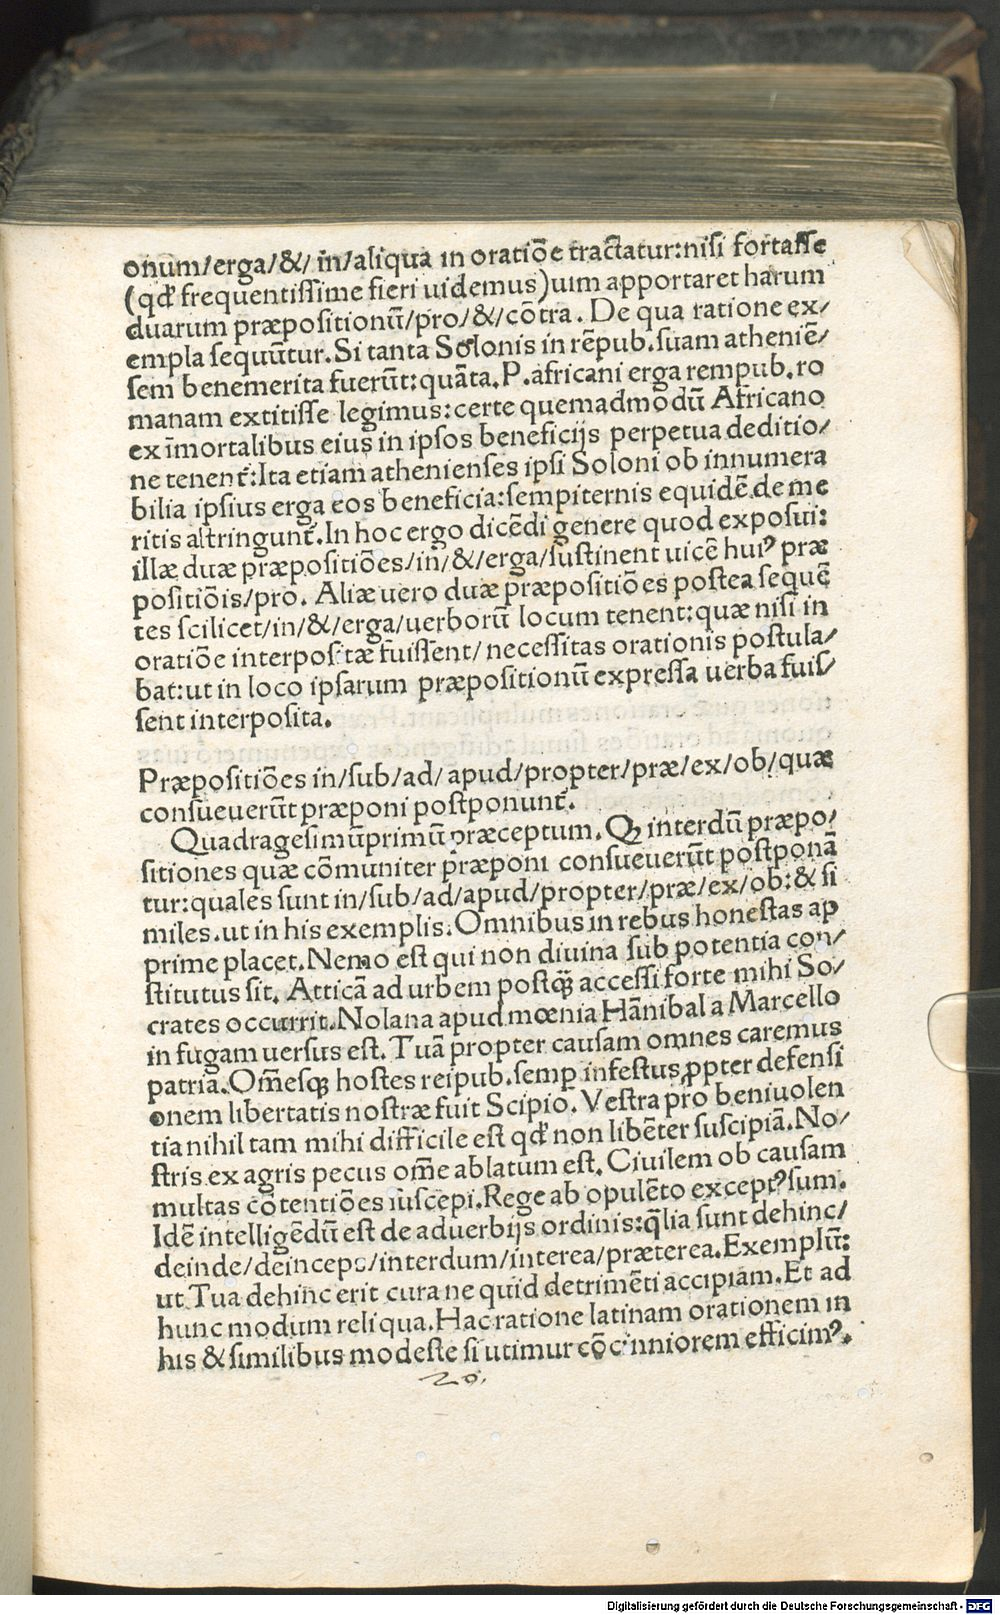 onum/erga/&/ in/aliqua in oratiōe tractatur:nisi fortasse
(qđ frequentissime fieri uidemus)uim apportaret harum
duarum præpositionū/pro/&/cōtra. De qua ratione ex/
empla sequūtur.Si tanta Solonis in rēpub.suam atheniē/
sem benemerita fuerūt:quāta.P.africani erga rempub.ro
manam extitisse legimus:certe quemadmodū Africano
ex īmortalibus eius in ipsos beneficijs perpetua deditio/
ne tenent̃:Ita etiam athenienses ipsi Soloni ob innumera
bilia ipsius erga eos beneficia:sempiternis equidē de me
ritis astringunt̃.In hoc ergo dicēdi genere quod exposui:
illæ duæ præpositiōes/in/&/erga/sustinent uicē huiꝰ præ
positiōis/pro. Aliæ uero duæ præpositiōes postea sequē
tes scilicet/in/&/erga/uerborū locum tenent:quæ nisi in
oratiōe interpositæ fuissent/necessitas orationis postula/
bat:ut in loco ipsarum præpositionū expressa uerba fuis/
sent interposita.
Præpositiōes in/sub/ad/apud/propter/præ/ex/ob/quæ
consueuerūt præponi postponunt̃.
Quadragesimūprimū præceptum. Qꝫ interdū præpo/
sitiones quæ cōmuniter præponi consueuerūt postponā
tur:quales sunt in/sub/ad/apud/propter/præ/ex/ob:& si
miles.ut in his exemplis.Omnibus in rebus honestas ap
prime placet.Nemo est qui non diuina sub potentia con/
stitutus sit. Atticā ad urbem postqꝫ̄ accessi forte mihi So/
crates occurrit.Nolana apud mœnia Hānibal a Marcello
in fugam uersus est.Tuā propter causam omnes caremus
patria.Om̄esqꝫ hostes reipub.semꝑ infestus ꝓpter defensi
onem libertatis nostræ fuit Scipio.Vestra pro beniuolen
tia nihil tam mihi difficile est qđ non libēter suscipiā.No/
stris ex agris pecus om̄e ablatum est.Ciuilem ob causam
multas cōtentiōes suscepi.Rege ab opulēto exceptꝰsum.
Idē intelligēdū est de aduerbijs ordinis:q̄lia sunt dehinc/
deinde/deinceps/interdum/interea/præterea.Exemplū:
ut Tua dehinc erit cura ne quid detrimēti accipiam.Et ad
hunc modum reliqua.Hac ratione latinam orationem in
his & similibus modeste si utimur cōcinniorem efficimꝰ.
20.
Digitalisierung gefördert durch die Deutsche Forschungsgemeinschaft - DFG